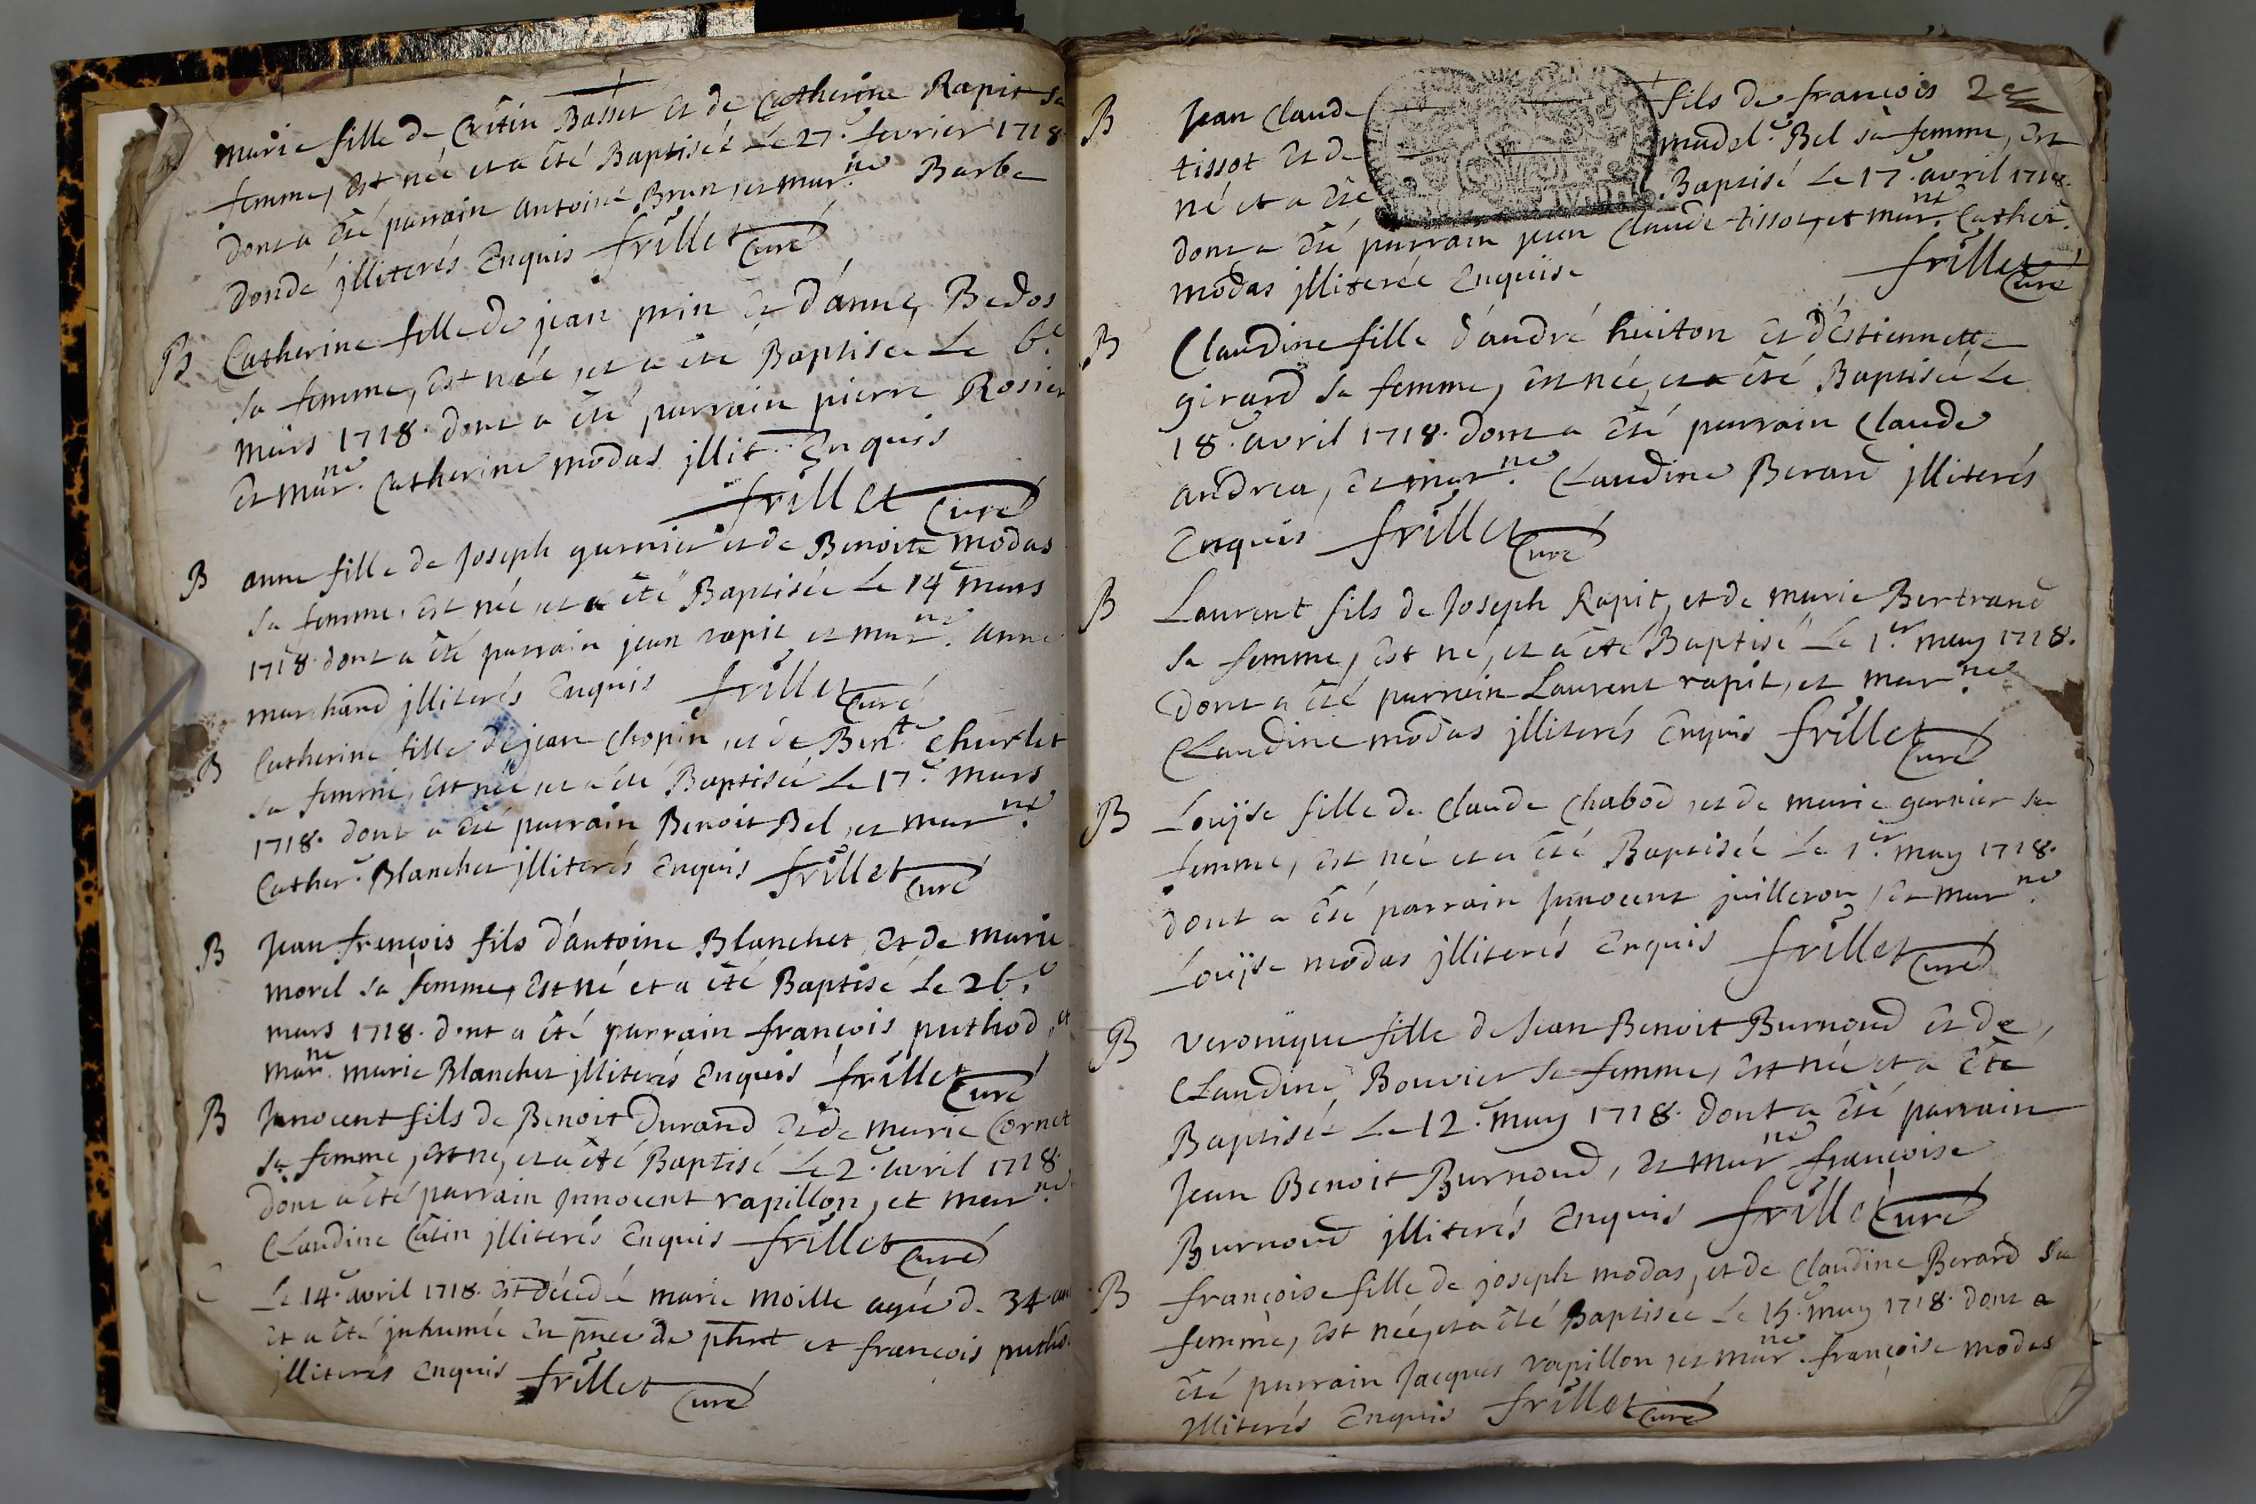 marie fille de Cristin Basset et de Catherine Rapit sa
femme, est née et a été Baptisée Le 27.e fevrier 1718
dont a été parrain antoine Brun, et mar.ne Barbe
Donde jlliterés Enquis frillet Curé
B Catherine fille de jean prin et d'anne Bedos
sa femme, est née, et a été Baptisée Le 6.e
mars 1718. dont a été parrain pierre Rosier
et mar.ne Catherine modas jllit. Enquis
frillet Curé
B anne fille de Joseph garnier et de Benoite modas
sa femme, est née, et a été Baptisée Le 14.e mars
1718. dont a été parrain jean rapit et mar.ne anne
marchand jlliterés Enquis frillet Curé
B Catherine fille de jean Chopin, et de Ben.te Churlet
sa femme, est née, et a été Baptisée Le 17.e mars
1718. dont a été parrain Benoit Bel, et mar.ne
Cather.e Blanchet jlliterés Enquis frillet Curé
B Jean françois fils d'antoine Blanchet, Et de marie
morel sa femme, est né et a été Baptisé Le 26.e
mars 1718. dont a été parrain françois puthod, et
mar.ne marie Blanchet jlliterés Enquis frillet Curé
B Jnnocent fils de Benoit Durand et de marie Cornet
sa femme, est né, et a été Baptisé Le 2.e avril 1718.
dont a été parrain Jnnocent rapillon, et mar.ne
Claudine Catin jlliterés Enquis frillet Curé
Le 14.e avril 1718. est décédée marie moille agée de 34 ans
et a été jnhumée En pnce de phrt et françois puthod
jlliterés Enquis frillet Curé
B Jean Claude fils de françois 2e
tissot et de madel.e Bel sa femme, est
né et a été Baptisé Le 17.e avril 1718.
dont a été parrain jean Claude tissot, et mar.ne Cather.
modas jlliterée Enquise frillet Curé
B Claudine fille d'andré huiton et d'Estiennette
girard sa femme, est née, et a été Baptisée Le
18.e avril 1718. dont a été parrain Claude
andrea, et mar.ne Claudine Berard jlliterés
Enquis frillet Curé
B Laurent fils de Joseph Rapit, et de marie Bertrand
sa femme, est né, et a été Baptisé Le 1.er may 1718.
dont a été parrain Laurent rapit, et mar.ne
Claudine modas jlliterés Enquis frillet Curé
B Louÿse fille de Claude Chabod, et de marie garnier sa
femme, est née et a été Baptisée Le 1.er may 1718.
dont a été parrain Jnnocent juilleron, et mar.ne
Louÿse modas jlliterés Enquis frillet Curé
B veronique fille de Jean Benoit Burnoud et de
Claudine Bouvier sa femme, est née et a été
Baptisée Le 12.e may 1718. dont a été parrain
Jean Benoit Burnoud, et mar.ne françoise
Burnoud jlliterés Enquis frillet Curé
B françoise fille de joseph modas, et de Claudine Berard sa
femme, est née, et a été Baptisée Le 15.e may 1718. dont a
été parrain Jacques rapillon, et mar.ne françoise modas
jlliterés Enquis frillet Curé